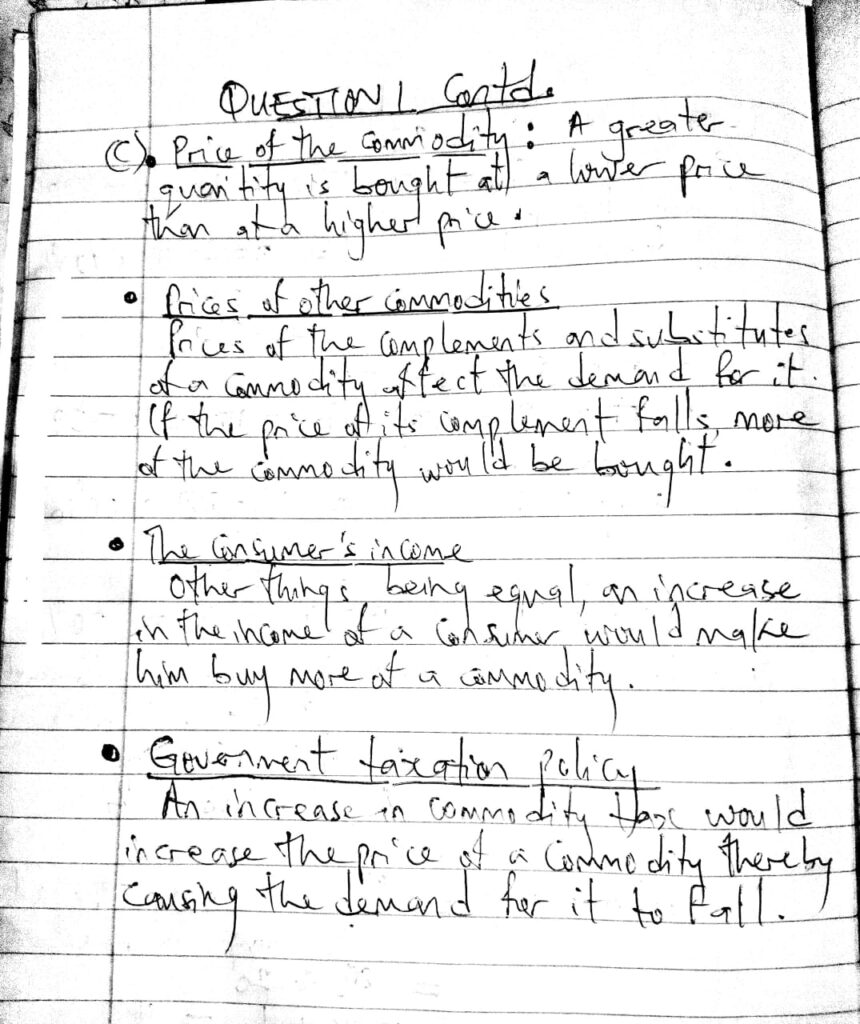 QUESTION 1 Contd.
(C). Price of the Commodity: A greater
quantity is bought at a lower price
than at a higher price.
• Prices of other commodities
Prices of the complements and substitutes
of a commodity affect the demand for it.
If the price of its complement falls, more
of the commodity would be bought.
• The Consumer's income
Other things being equal, an increase
in the income of a consumer would make
him buy more of a commodity.
• Government taxation policy
An increase in commodity tax would
increase the price of a commodity thereby
causing the demand for it to fall.